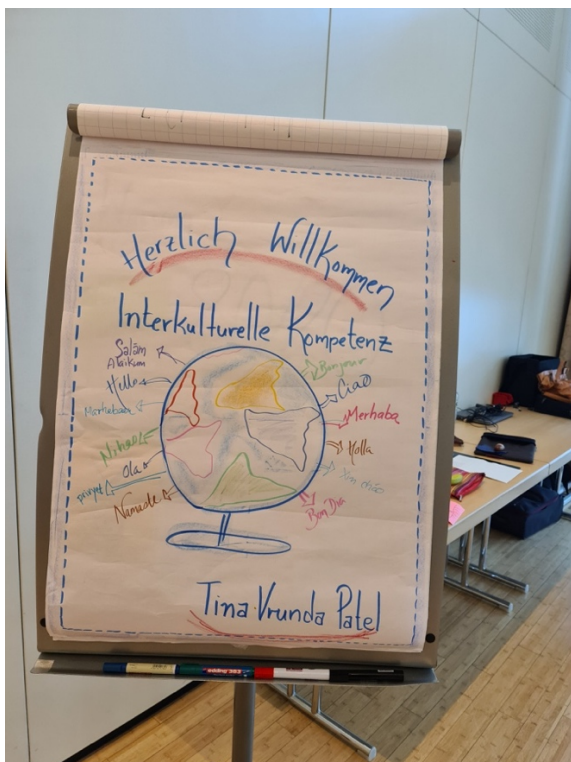 Herzlich Willkommen
Interkulturelle Kompetenz
Salām
Alaikum
Hello
Marhabaan
Nihao
Ola
privyet
Namaste
Bonjour
Ciao
Merhaba
Holla
Xin chào
Bom Dia
Tina Vrunda Patel